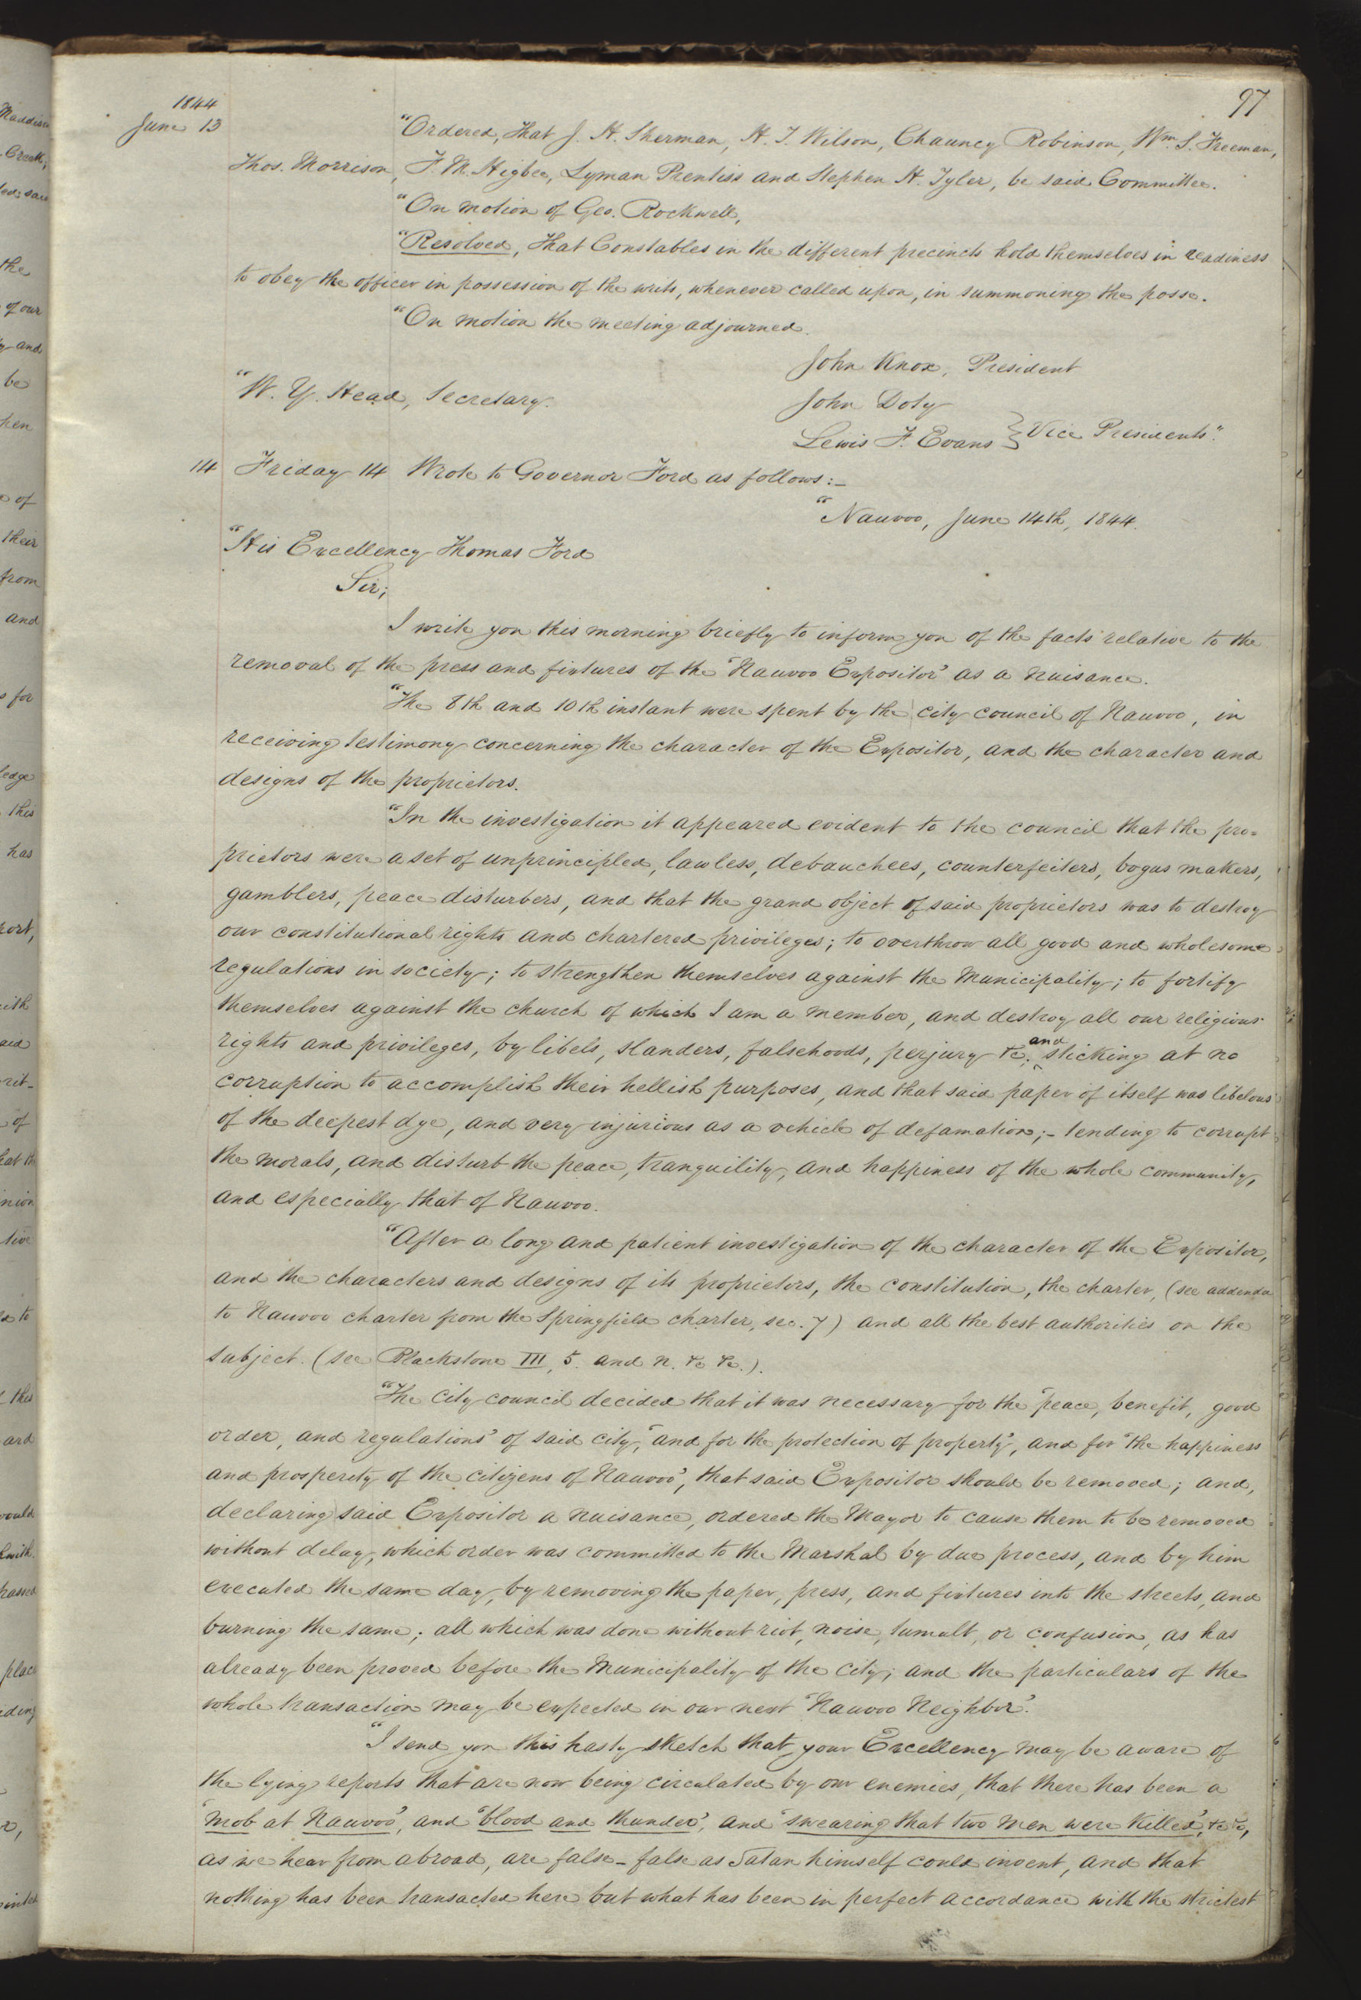 97
1844
June 13
"Ordered, that J. H. Sherman, H. T. Wilson, Chauncy Robinson, Wm. S. Freeman,
Thos. Morrison, F. M. Higbee, Lyman Prentiss and Stephen H. Tyler, be said Committee.
"On motion of Geo. Rockwell,
"Resolved, that Constables in the different precincts hold themselves in readiness
to obey the officer in possession of the writs, whenever called upon, in summoning the posse.
"On motion the meeting adjourned.
John Knox, President
"W. Y. Head, Secretary.
John Doty
Lewis F. Evans } Vice Presidents".
14 Friday 14 Wrote to Governor Ford as follows:-
"Nauvoo, June 14th, 1844.
"His Excellency Thomas Ford
Sir;
I write you this morning briefly to inform you of the facts relative to the
removal of the press and fixtures of the "Nauvoo Expositor" as a nuisance.
"The 8th and 10th instant were spent by the city council of Nauvoo, in
receiving testimony concerning the character of the Expositor, and the character and
designs of the proprietors.
"In the investigation it appeared evident to the council that the pro=
prietors were a set of unprincipled, lawless, debauchees, counterfeiters, bogus makers,
gamblers, peace disturbers, and that the grand object of said proprietors was to destroy
our constitutional rights and chartered privileges; to overthrow all good and wholesome
regulations in society; to strengthen themselves against the Municipality; to fortify
themselves against the church of which I am a member, and destroy all our religious
rights and privileges, by libels, slanders, falsehoods, perjury &c. and sticking at no
corruption to accomplish their hellish purposes, and that said paper of itself was libelous
of the deepest dye, and very injurious as a vehicle of defamation;- tending to corrupt
the morals, and disturb the peace, tranquility, and happiness of the whole community,
and especially that of Nauvoo.
"After a long and patient investigation of the character of the Expositor,
and the characters and designs of its proprietors, the constitution, the charter, (see addenda
to Nauvoo charter from the Springfield charter, sec. 7) and all the best authorities on the
subject. (see Blackstone III, 5. and n. &c &c.).
"The city council decided that it was necessary for the "peace, benefit, good
order, and regulations" of said city, "and for the protection of property", and for "the happiness
and prosperity of the citizens of Nauvoo", that said Expositor should be removed; and,
declaring said Expositor a nuisance, ordered the Mayor to cause them to be removed
without delay, which order was committed to the Marshal by due process, and by him
executed the same day, by removing the paper, press, and fixtures into the streets, and
burning the same; all which was done without riot, noise, tumult, or confusion, as has
already been proved before the Municipality of the city; and the particulars of the
whole transaction may be expected in our next "Nauvoo Neighbor".
"I send you this hasty sketch that your Excellency may be aware of
the lying reports that are now being circulated by our enemies, that there has been a
"mob at Nauvoo", and "blood and thunder", and "swearing that two men were killed", &c &c,
as we hear from abroad, are false - false as Satan himself could invent, and that
nothing has been transacted here but what has been in perfect accordance with the strictest